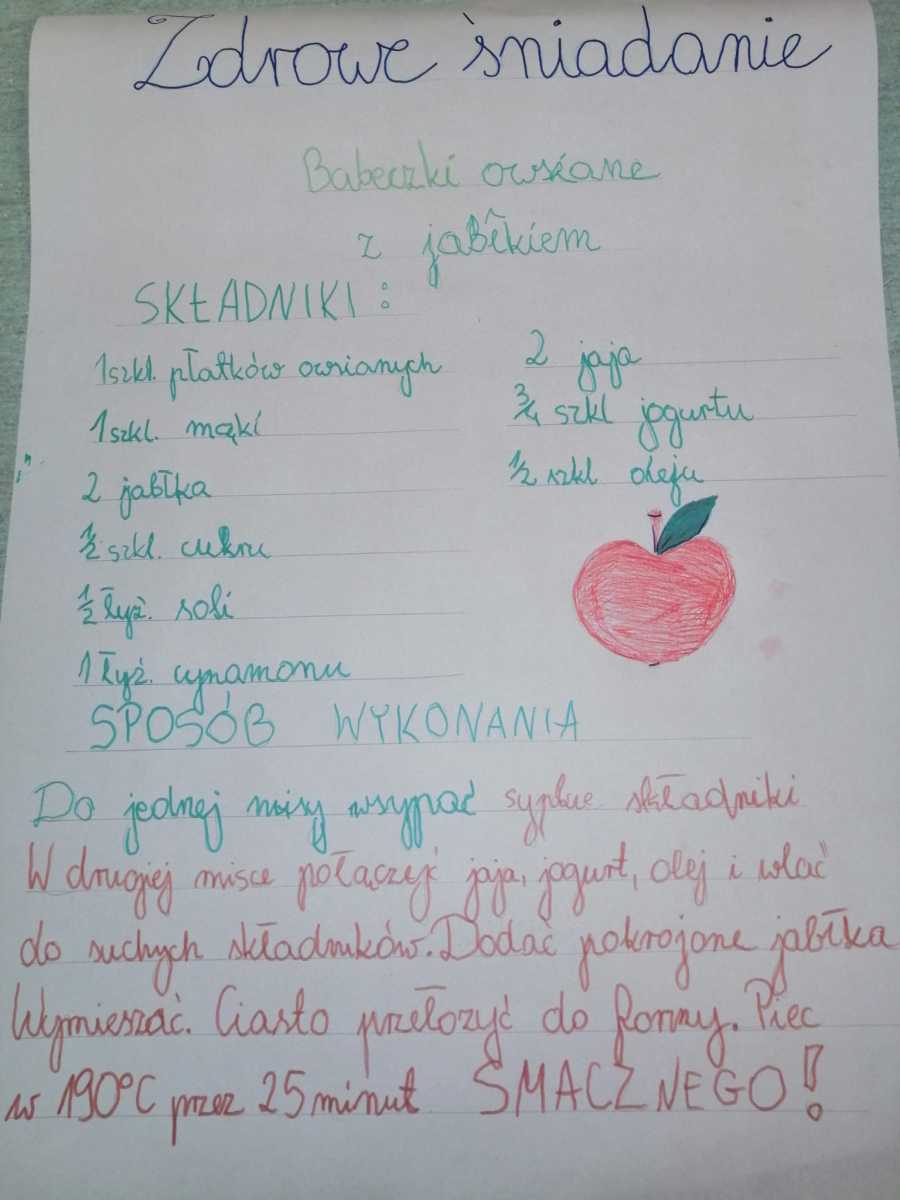 Zdrowe śniadanie
Babeczki owsiane
z jabłkiem
SKŁADNIKI:
1szkl. płatków owsianych
1szkl. mąki
2 jabłka
1/2 szkl. cukru
1/2 łyż. soli
1 łyż. cynamonu
2 jaja
3/4 szkl jogurtu
1/2 szkl oleju
SPOSÓB WYKONANIA
Do jednej misy wsypać sypkie składniki
W drugiej misce połączyć jaja, jogurt, olej i wlać
do suchych składników. Dodać pokrojone jabłka
Wymieszać. Ciasto przełozyć do formy. Piec
w 190°C przez 25 minut SMACZNEGO!